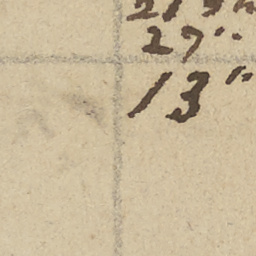 27"
13"